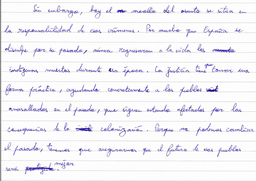 Sin embargo, hoy el meollo del asunto se sitúa en
la responsabilidad de esos crímenes. Por mucho que España se
disculpe por su pasado, nunca regresaron a la vida los
indígenas muertos durante esa época. La justicia tiene que tomar una
forma práctica, ayudando concretamente a los pueblos
avasallados en el pasado, que siguen estando afectados por las
consecuencias de la colonización. Porque no podemos cambiar
el pasado, tenemos que asegurarnos que el futuro de esos pueblos
será mejor